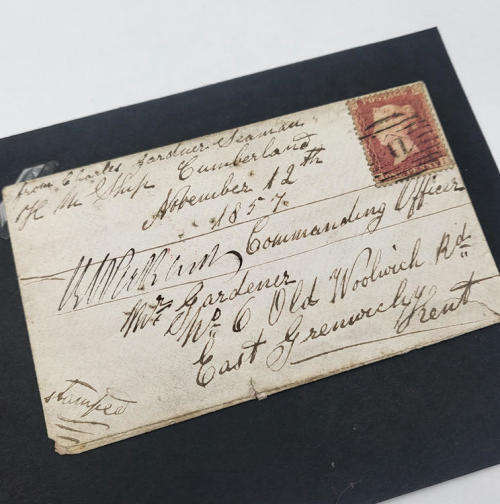 from Charles Gardner Seaman
of H M Ship Cumberland
November 12th
1857.
Commanding Officer
Mr Gardener
No 6 Old Woolwich Rd
East Greenwich
Kent
stamped
POSTAGE
11